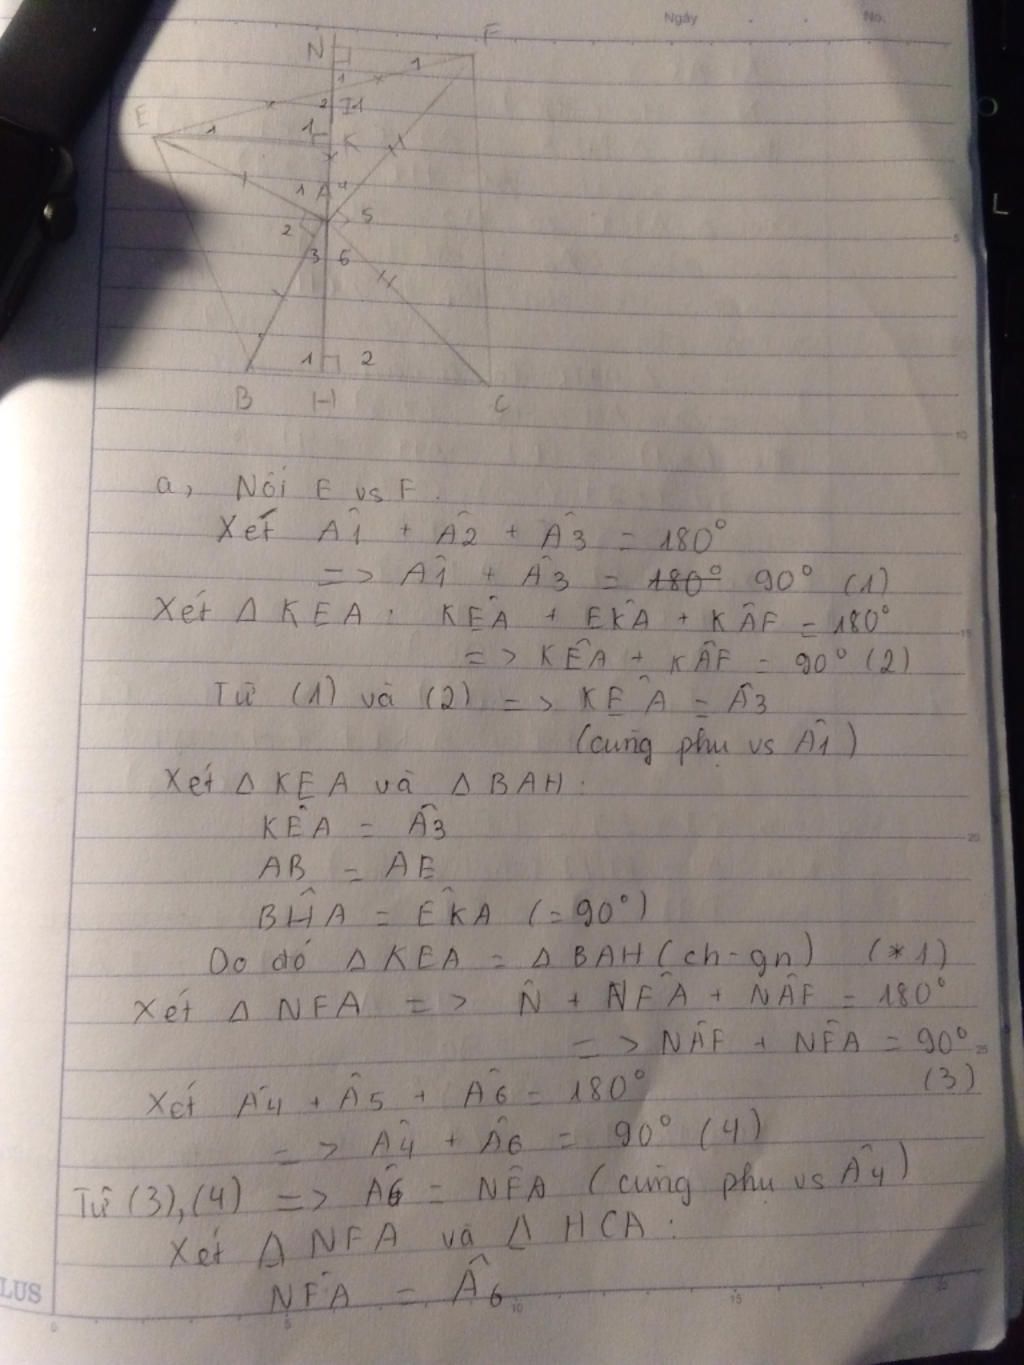 Ngày . . No.
N F
1
1
2 I1
E 1 1 K
1 A 4
2 5
3 6
1 2
B H C
L
5
10
a, Nối E vs F.
Xét Â1 + Â2 + Â3 = 180°
=> Â1 + Â3 = 180° 90° (1)
Xét Δ KEA : KÊA + EK̂A + KÂF = 180°
=> KÊA + KÂF = 90° (2)
Từ (1) và (2) => KÊA = Â3
(cùng phụ vs Â1)
Xét Δ KEA và Δ BAH :
KÊA = Â3
AB = AE
BĤA = EK̂A (= 90°)
Do đó Δ KEA = Δ BAH (ch-gn) (*1)
Xét Δ NFA => N̂ + NF̂A + NÂF = 180°
=> NÂF + NF̂A = 90°
(3)
Xét Â4 + Â5 + Â6 = 180°
=> Â4 + Â6 = 90° (4)
Từ (3), (4) => Â6 = NF̂A (cùng phụ vs Â4)
Xét Δ NFA và Δ HCA :
NF̂A = Â6
LUS
0 5 10 15 20